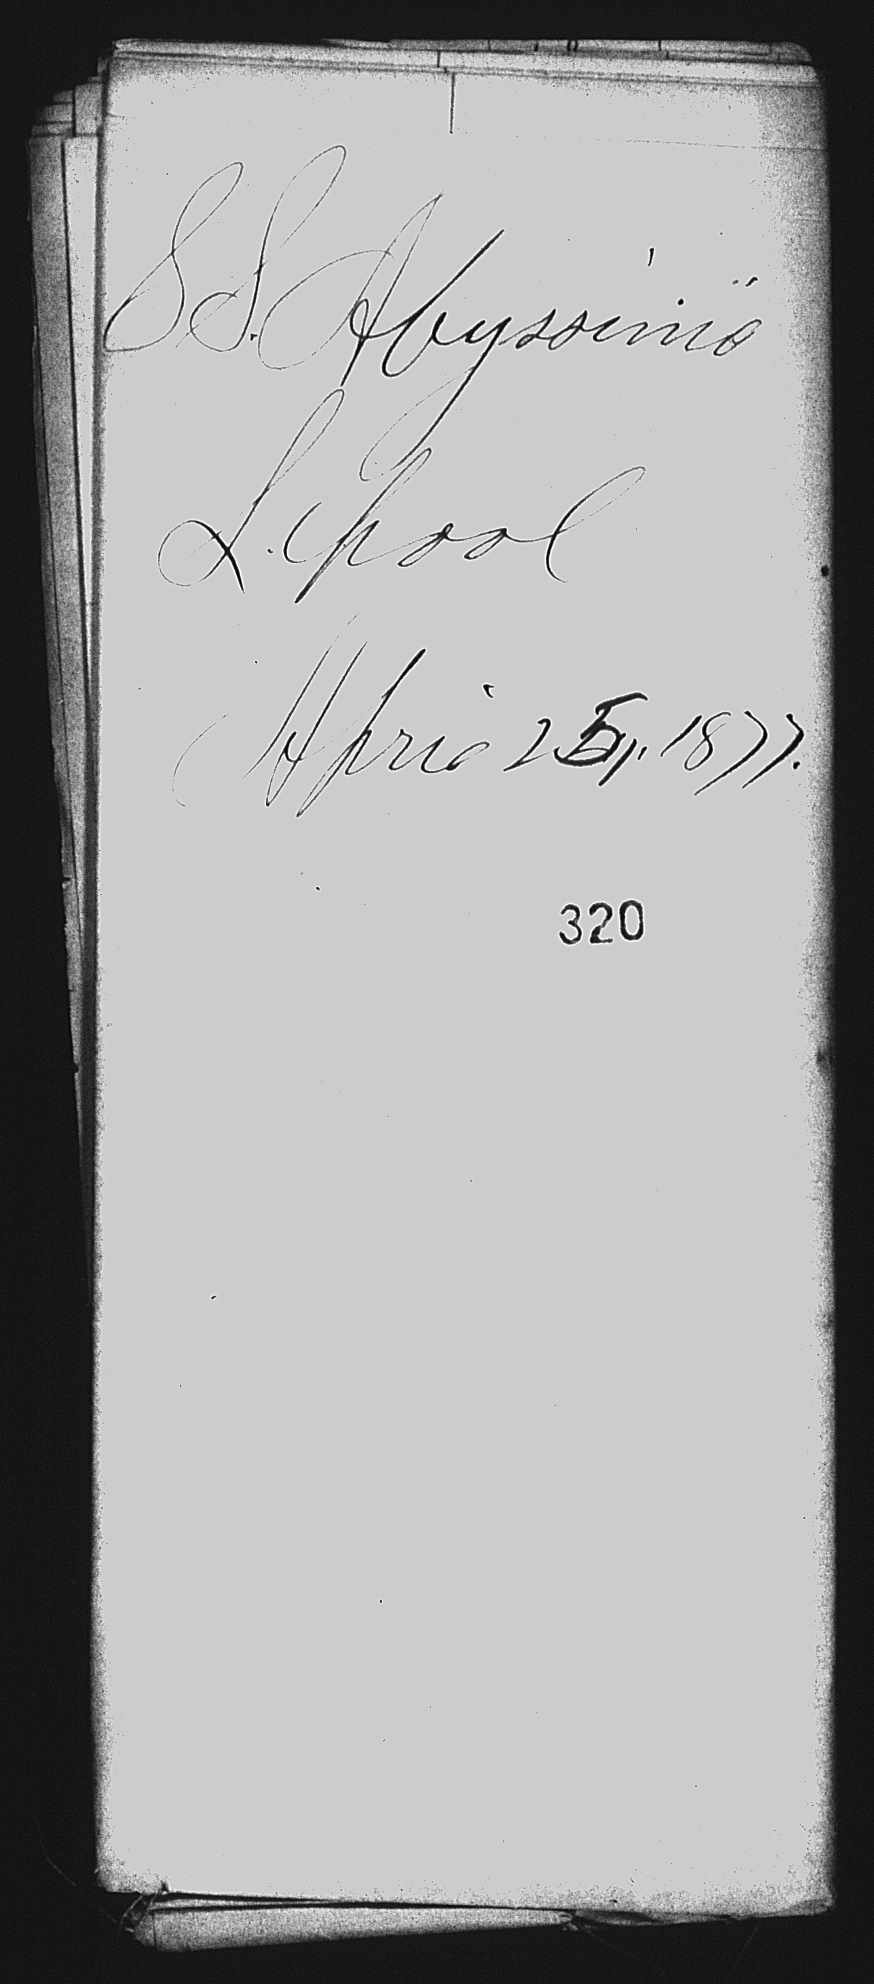 S S. Abyssinia
L.pool
April 25, 1877.
320